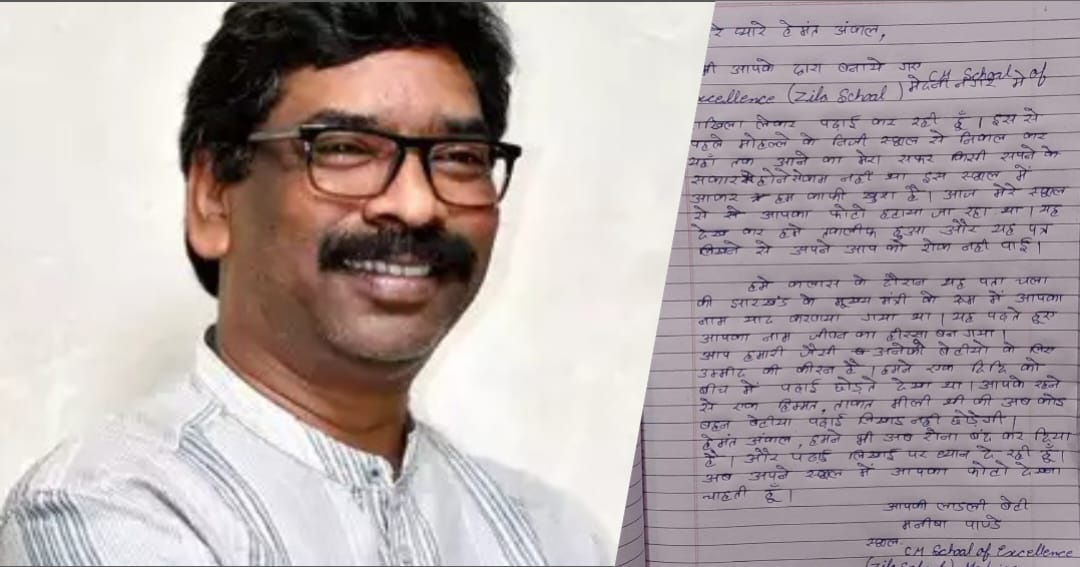 रे प्यारे हेमंत अंकल,
आपके द्वारा बनाये गए
CM School of
xcellence (Zila School) मेदनी नगर में
खिला लेकर पढाई कर रही हूँ। इस से
पहले मोहल्ले के निजी स्कूल से निकल कर
यहाँ तक आने का मेरा सफर किसी सपने के
सकार होने से कम नही था इस स्कूल में
आकर हम काफी खुश है। आज मेरे स्कूल
से आपका फोटो हटाया जा रहा था। यह
देख कर हमे तकलीफ हुआ और यह पत्र
लिखने से अपने आप को रोक नही पाई।
हमे कलास के दौरान यह पता चला
की झारखंड के मुख्य मंत्री के रूम में आपका
नाम याद करवाया गया था। यह पढते हुए
आपका नाम जीवन का हीस्सा बन गया।
आप हमारी जैसी अनेको बेटीयो के लिए
उम्मीद की कीरन है। हमने एक दिदि को
बीच में पढाई छोड़ते देखा था। आपके रहने
से एक हिम्मत, ताकत मीली थी की अब कोइ
बहन बेटीया पढाई लिखाइ नही छोड़ेगी।
हेमंत अंकाल, हमने भी अब रोना बंद कर दिया
है। और पढाई लिखाई पर ध्यान दे रही हूँ।
अब अपने स्कूल में आपका फोटो देखना
चाहती हूँ।
आपकी लाडली बेटी
मनीषा पाण्डे
स्कूल
CM School of Excellence